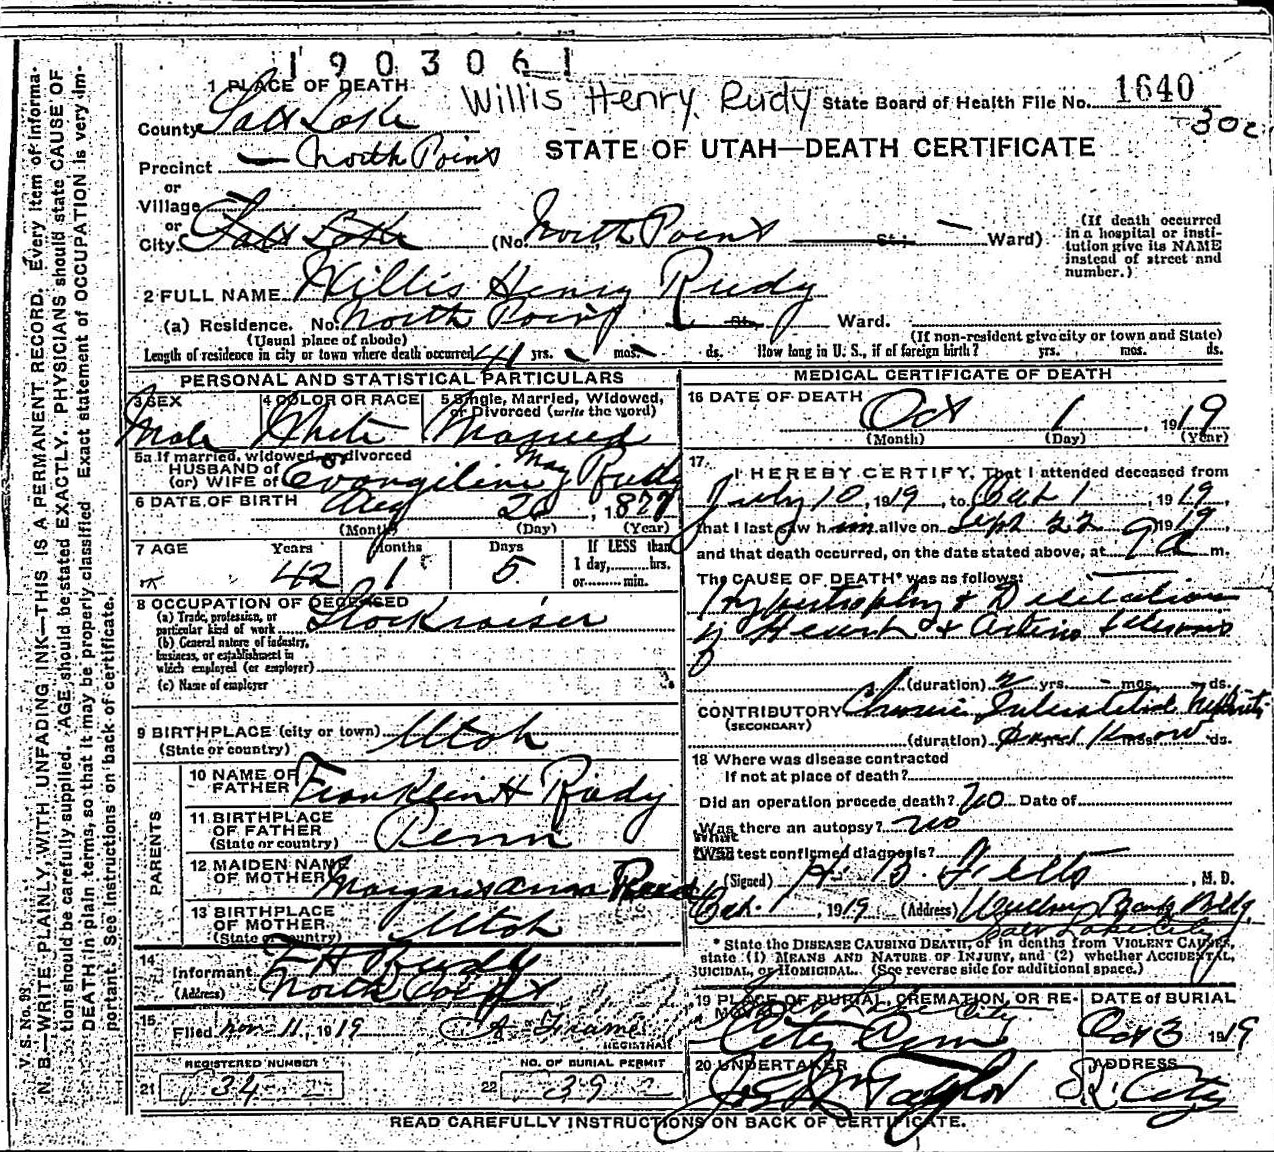 1903061
1 PLACE OF DEATH
Willis Henry Rudy State Board of Health File No. 1640
30c
County Salt Lake
STATE OF UTAH—DEATH CERTIFICATE
Precinct — North Point
or
Village
or
City Salt Lake (No. North Point St.; — Ward)
(If death occurred in a hospital or insti-
tution give its NAME
instead of street and
number.)
2 FULL NAME Willis Henry Rudy
(a) Residence. No. North Point St. Ward.
(Usual place of abode) (If non-resident give city or town and State)
Length of residence in city or town where death occurred 41 yrs. - mos. - ds. How long in U. S., if of foreign birth? yrs. mos. ds.
PERSONAL AND STATISTICAL PARTICULARS
3 SEX 4 COLOR OR RACE 5 Single, Married, Widowed,
or Divorced (write the word)
Male White Married
5a If married, widowed or divorced
HUSBAND of
(or) WIFE of Evangiline May Rudy
6 DATE OF BIRTH Aug 26, 1877
(Month) (Day) (Year)
7 AGE Years Months Days If LESS than
1 day, hrs.
or min.
42 1 5
8 OCCUPATION OF DECEASED
(a) Trade, profession, or
particular kind of work Stockraiser
(b) General nature of industry,
business, or establishment in
which employed (or employer)
(c) Name of employer
9 BIRTHPLACE (city or town) Utah
(State or country)
PARENTS
10 NAME OF
FATHER Franklin H Rudy
11 BIRTHPLACE
OF FATHER Penn
(State or country)
12 MAIDEN NAME
OF MOTHER
13 BIRTHPLACE
OF MOTHER Utah
(State or country)
14
Informant F H Rudy
(Address) North Point
15
Filed Nov 11, 1919
REGISTRAR
REGISTERED NUMBER NO. OF BURIAL PERMIT
21 34 22 39
MEDICAL CERTIFICATE OF DEATH
16 DATE OF DEATH Oct 1, 1919
(Month) (Day) (Year)
17.
I HEREBY CERTIFY, That I attended deceased from
July 10, 1919, to Oct 1, 1919,
that I last saw him alive on Sept 22, 1919,
and that death occurred, on the date stated above, at 9 a m.
The CAUSE OF DEATH* was as follows:
Hypertrophy & Dilitation
of Heart & Arterio sclerosis
(duration) 2 yrs. - mos. - ds.
CONTRIBUTORY Chronic Interstitial Nephritis
(SECONDARY)
(duration) Dont Know mos. ds.
18 Where was disease contracted
if not at place of death?
Did an operation precede death? No Date of
Was there an autopsy? No
What test confirmed diagnosis?
(Signed) H. B. Felts, M. D.
Oct. 1, 1919 (Address) Bank Bldg.
Salt Lake City
* State the DISEASE CAUSING DEATH, or in deaths from VIOLENT CAUSES,
state (1) MEANS AND NATURE OF INJURY, and (2) whether ACCIDENTAL,
SUICIDAL, or HOMICIDAL. (See reverse side for additional space.)
19 PLACE OF BURIAL, CREMATION, OR RE-
MOVAL
DATE of BURIAL
Salt Lake City
City Cem Oct 3 1919
20 UNDERTAKER ADDRESS
Jos Wm Taylor S. L. City
READ CAREFULLY INSTRUCTIONS ON BACK OF CERTIFICATE.
V. S. No. 93
N. B.—WRITE PLAINLY, WITH UNFADING INK—THIS IS A PERMANENT RECORD. Every item of informa-
tion should be carefully supplied. AGE should be stated EXACTLY. PHYSICIANS should state CAUSE OF
DEATH in plain terms, so that it may be properly classified. Exact statement of OCCUPATION is very im-
portant. See instructions on back of certificate.